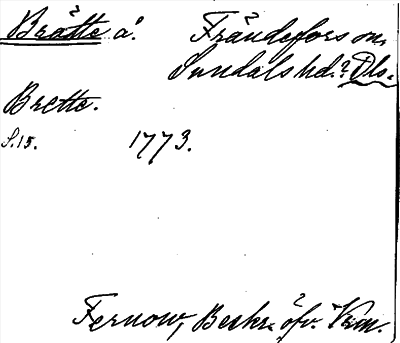 Brätte å. Frändefors sn,
Sundals hd.? Dls.
Brette.
S. 15. 1773.
Fernow, Beskr. öfv. Vrm.